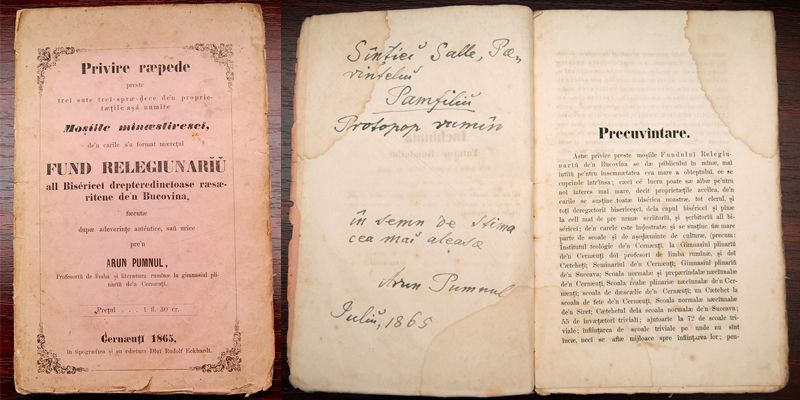 Privire ræpede
preste
trei sute trei-spræ-dece de'n proprie-
tæțile așá numite
Moșiile minæstiresci,
de'n carile s'a format mærețul
FUND RELEGIUNARIŬ
all Biséricei drepteredincioase ræsæ-
ritene de'n Bucovina,
fæcutæ
dupæ adeverințe auténtice, saŭ urice
pre'n
ARUN PUMNUL,
Profesoriŭ de limba și literatura rumînæ la gimnasiul ple-
nariŭ de'n Cernæuți.
Prețul . . . 1 fl. 30 cr.
Cernæuți 1865,
in tipografiea și su editura Dlui Rudolf Eckhardt.
Sînției Salle, Pæ-
rinteliŭ
Pamfiliŭ
Protopop rumîn
în semn de stima
cea mai aleasæ
Arun Pumnul
Iuliŭ, 1865
Precuvintare.
Astæ privire preste moșiile Fundului Relegiu-
nariŭ de'n Bucovina se dæ públicului in mînæ, mai
intîiŭ pe'ntru insemnætatea cea mare a obieptului, ce se
cuprinde intr'insa; cæci cé lucru poate sæ aibæ pe'ntru
noi interes mai mare, decit proprietæțile acellea, de'n
carile se susține toatæ biserica noastræ, tot clerul, și
toți deregætorii bisericesci, dela capul biséricei și pînæ
la cell mai de pre urmæ scriitoriŭ, și șerbitoriŭ all bi-
séricei; de'n carele este inzestratæ și se susține úæ mare
parte de scoale și de așeḑæminte de culturæ, (precum:
Institutul teológic de'n Cernæuți, la Gimnasiul plinariŭ
de'n Cernæuți doi profesori de limba rumînæ, și doi
Cætcheți; Seminariul de'n Cernæuți; Gimnasiul plinariŭ
de'n Suceava; Scoala normalæ și preparandale næciunalæ
de'n Cernæuți; Scoala reale plinariæ næciunalæ de'n Cer-
næuți; scoala de dæscælie de'n Cernæuți; un Cætchet la
scoala de fete de'n Cernæuți, Scoala normalæ næciunalæ
de'n Siret; Cætchetul dela scoala normalæ de'n Suceava;
55 de invæțætori triviali; ajutoarie la 72 de scoale tri-
viale; inființarea de scoale triviale pe unde nu sînt
incæ, neci se aflæ mijloace spre inființarea lor; pen-